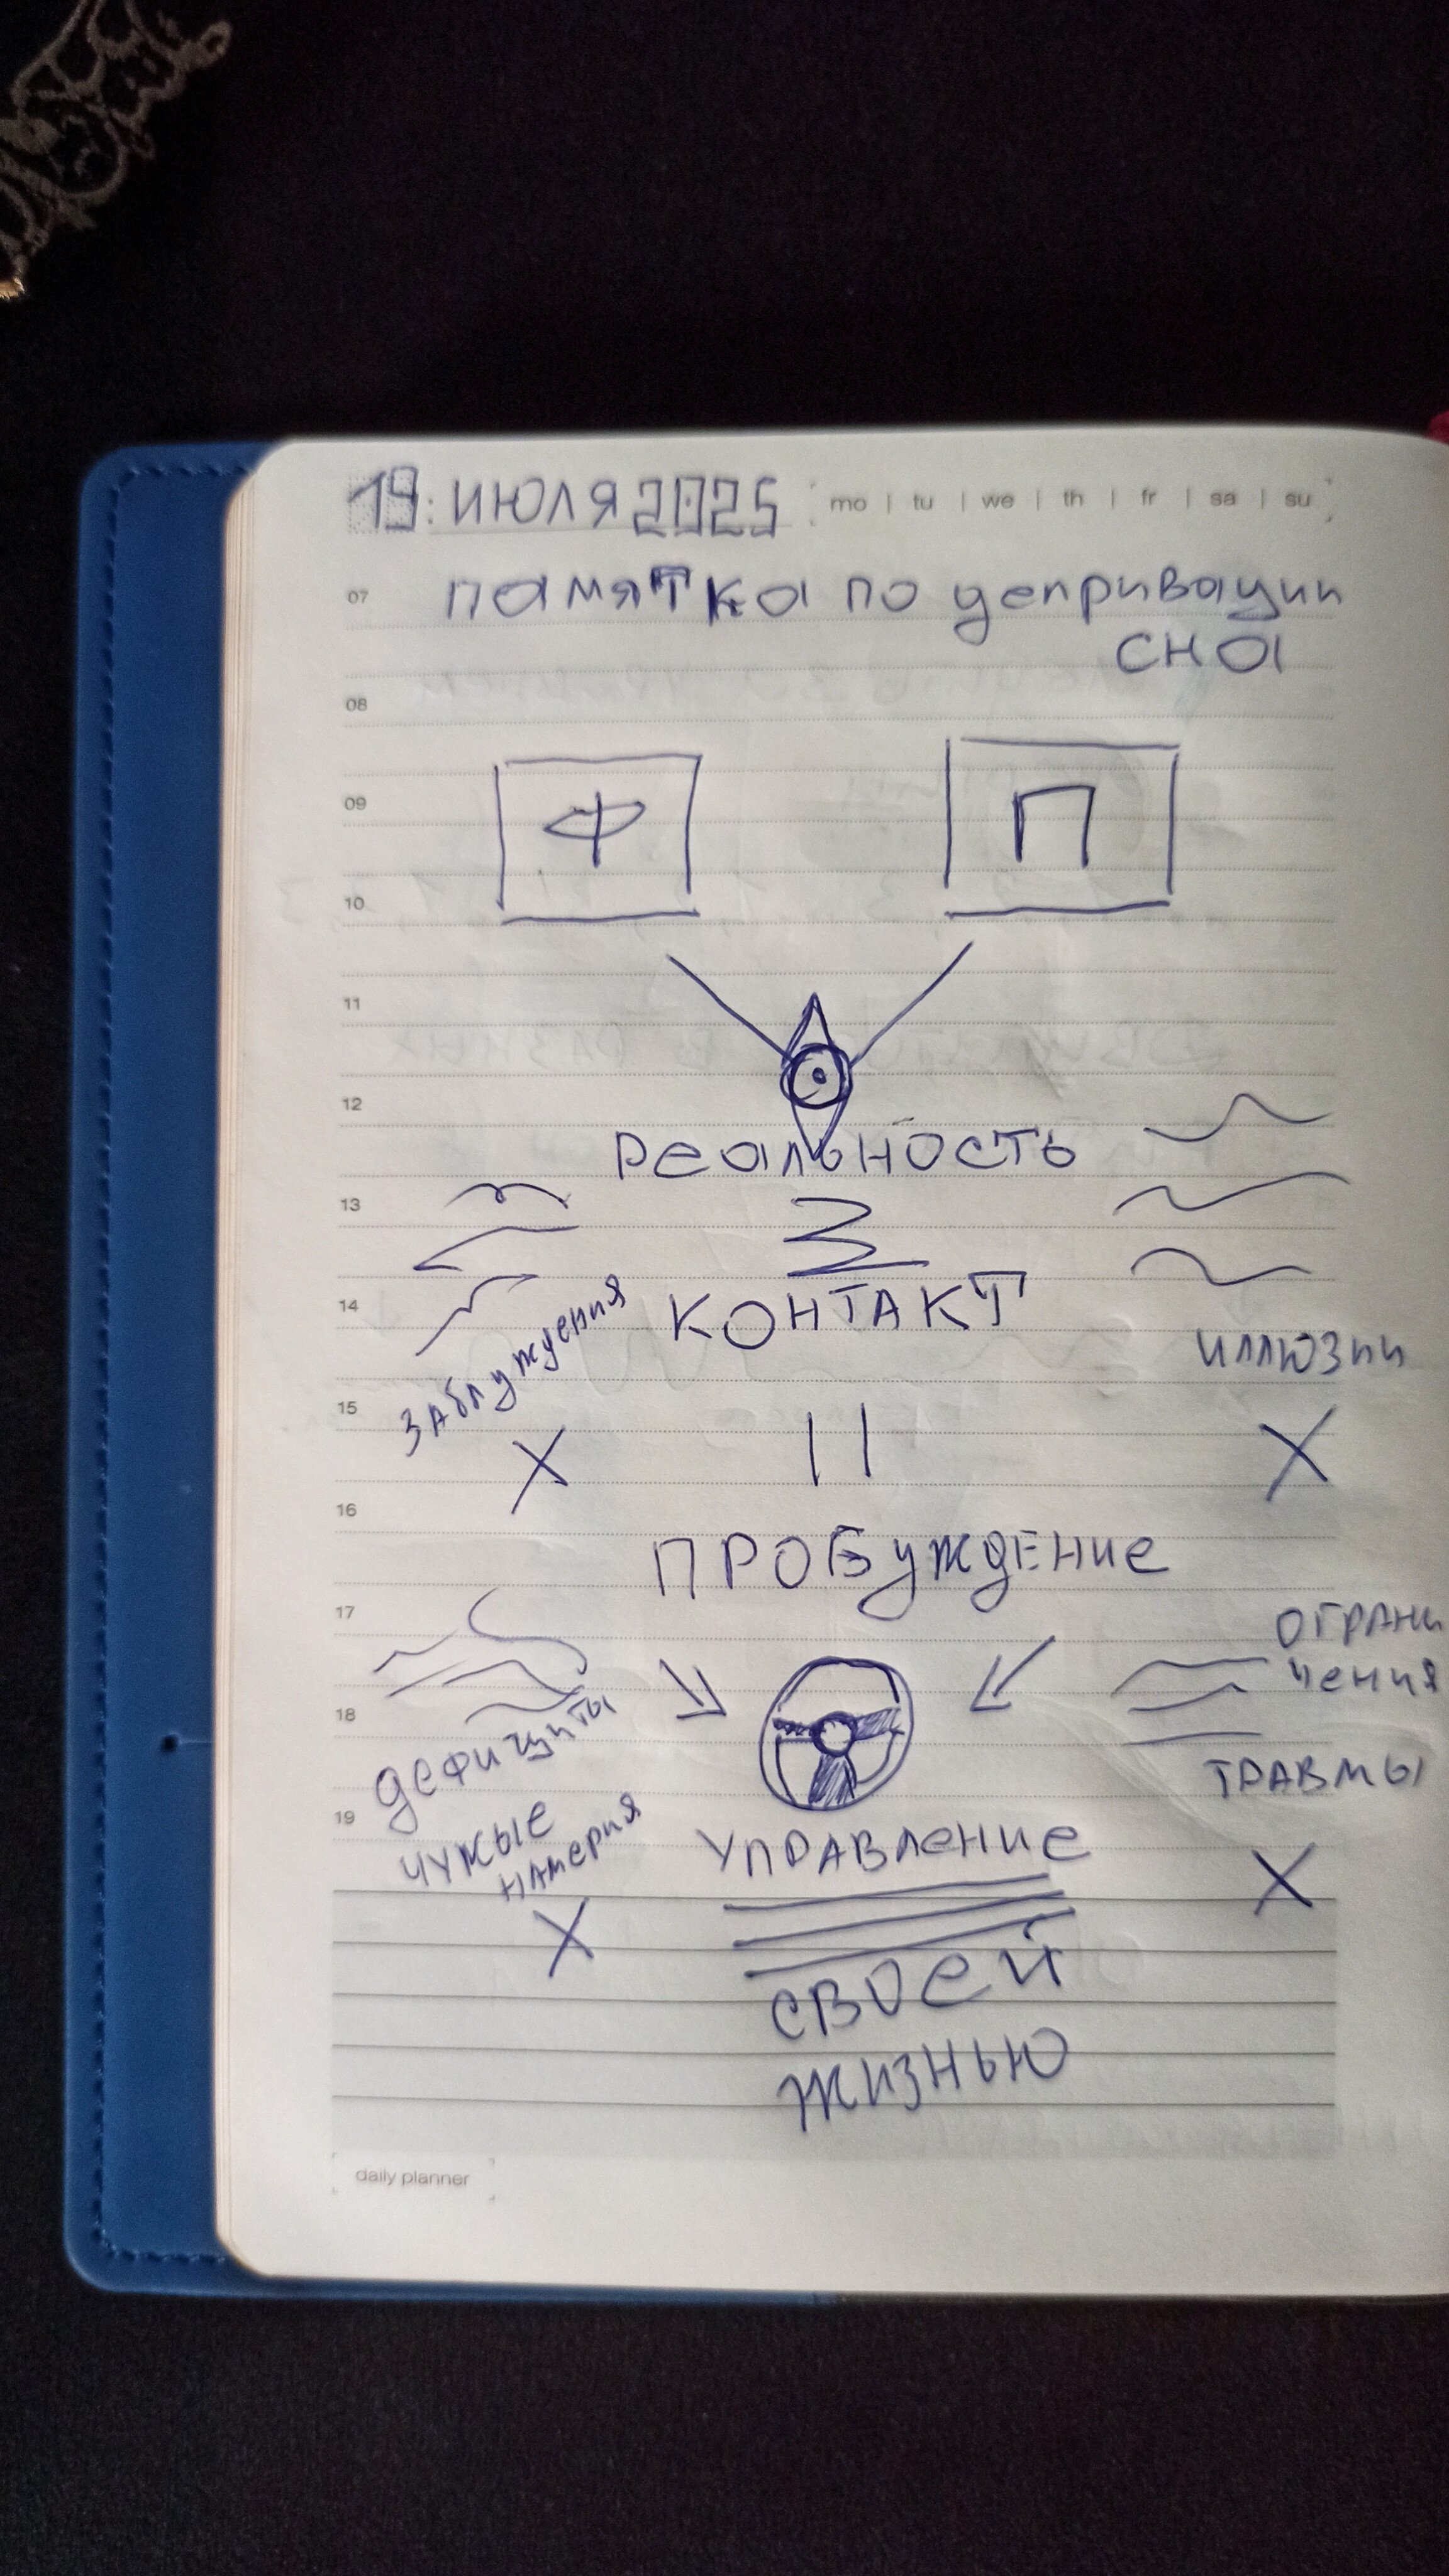 19 ИЮЛЯ 2025 mo | tu | we | th | fr | sa | su
07 памятка по депривации
сна
08
09 Ф П
10
11
12
реальность
13
14 КОНТАКТ
заблуждения иллюзии
15 X || X
16
ПРОБУЖДЕНИЕ
17 ОГРАНИ
чения
18
дефициты ТРАВМЫ
19 ЧУЖЫЕ УПРАВЛЕНИЕ
НАМЕРИЯ X
X СВОЕЙ
ЖИЗНЬЮ
daily planner